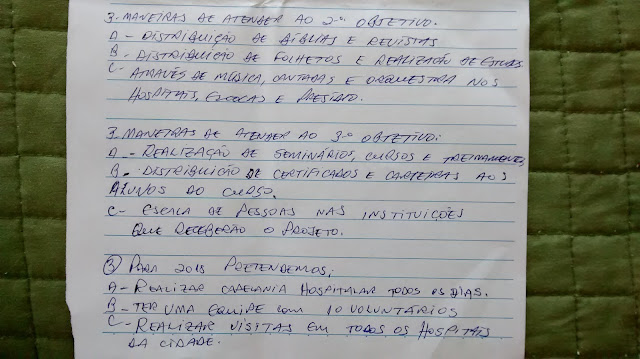 3. MANEIRAS DE ATENDER AO 2º OBJETIVO.
A - DISTRIBUIÇÃO DE BÍBLIAS E REVISTAS
B - DISTRIBUIÇÃO DE FOLHETOS E REALIZAÇÃO DE ESTUDOS
C - ATRAVÉS DE MÚSICA, CANTADAS E ORQUESTRA NOS
HOSPITAIS, ESCOLAS E PRESÍDIO.
3. MANEIRAS DE ATENDER AO 3º OBJETIVO:
A - REALIZAÇÃO DE SEMINÁRIOS, CURSOS E TREINAMENTOS,
B - DISTRIBUIÇÃO DE CERTIFICADOS E CARTEIRAS AOS
ALUNOS DO CURSO.
C - ESCALA DE PESSOAS NAS INSTITUIÇÕES
QUE RECEBERÃO O PROJETO.
PARA PRETENDEMOS;
A - REALIZAR CAPELANIA HOSPITALAR TODOS OS DIAS.
B - TER UMA EQUIPE COM 10 VOLUNTÁRIOS
C - REALIZAR VISITAS EM TODOS OS HOSPITAIS
DA CIDADE.